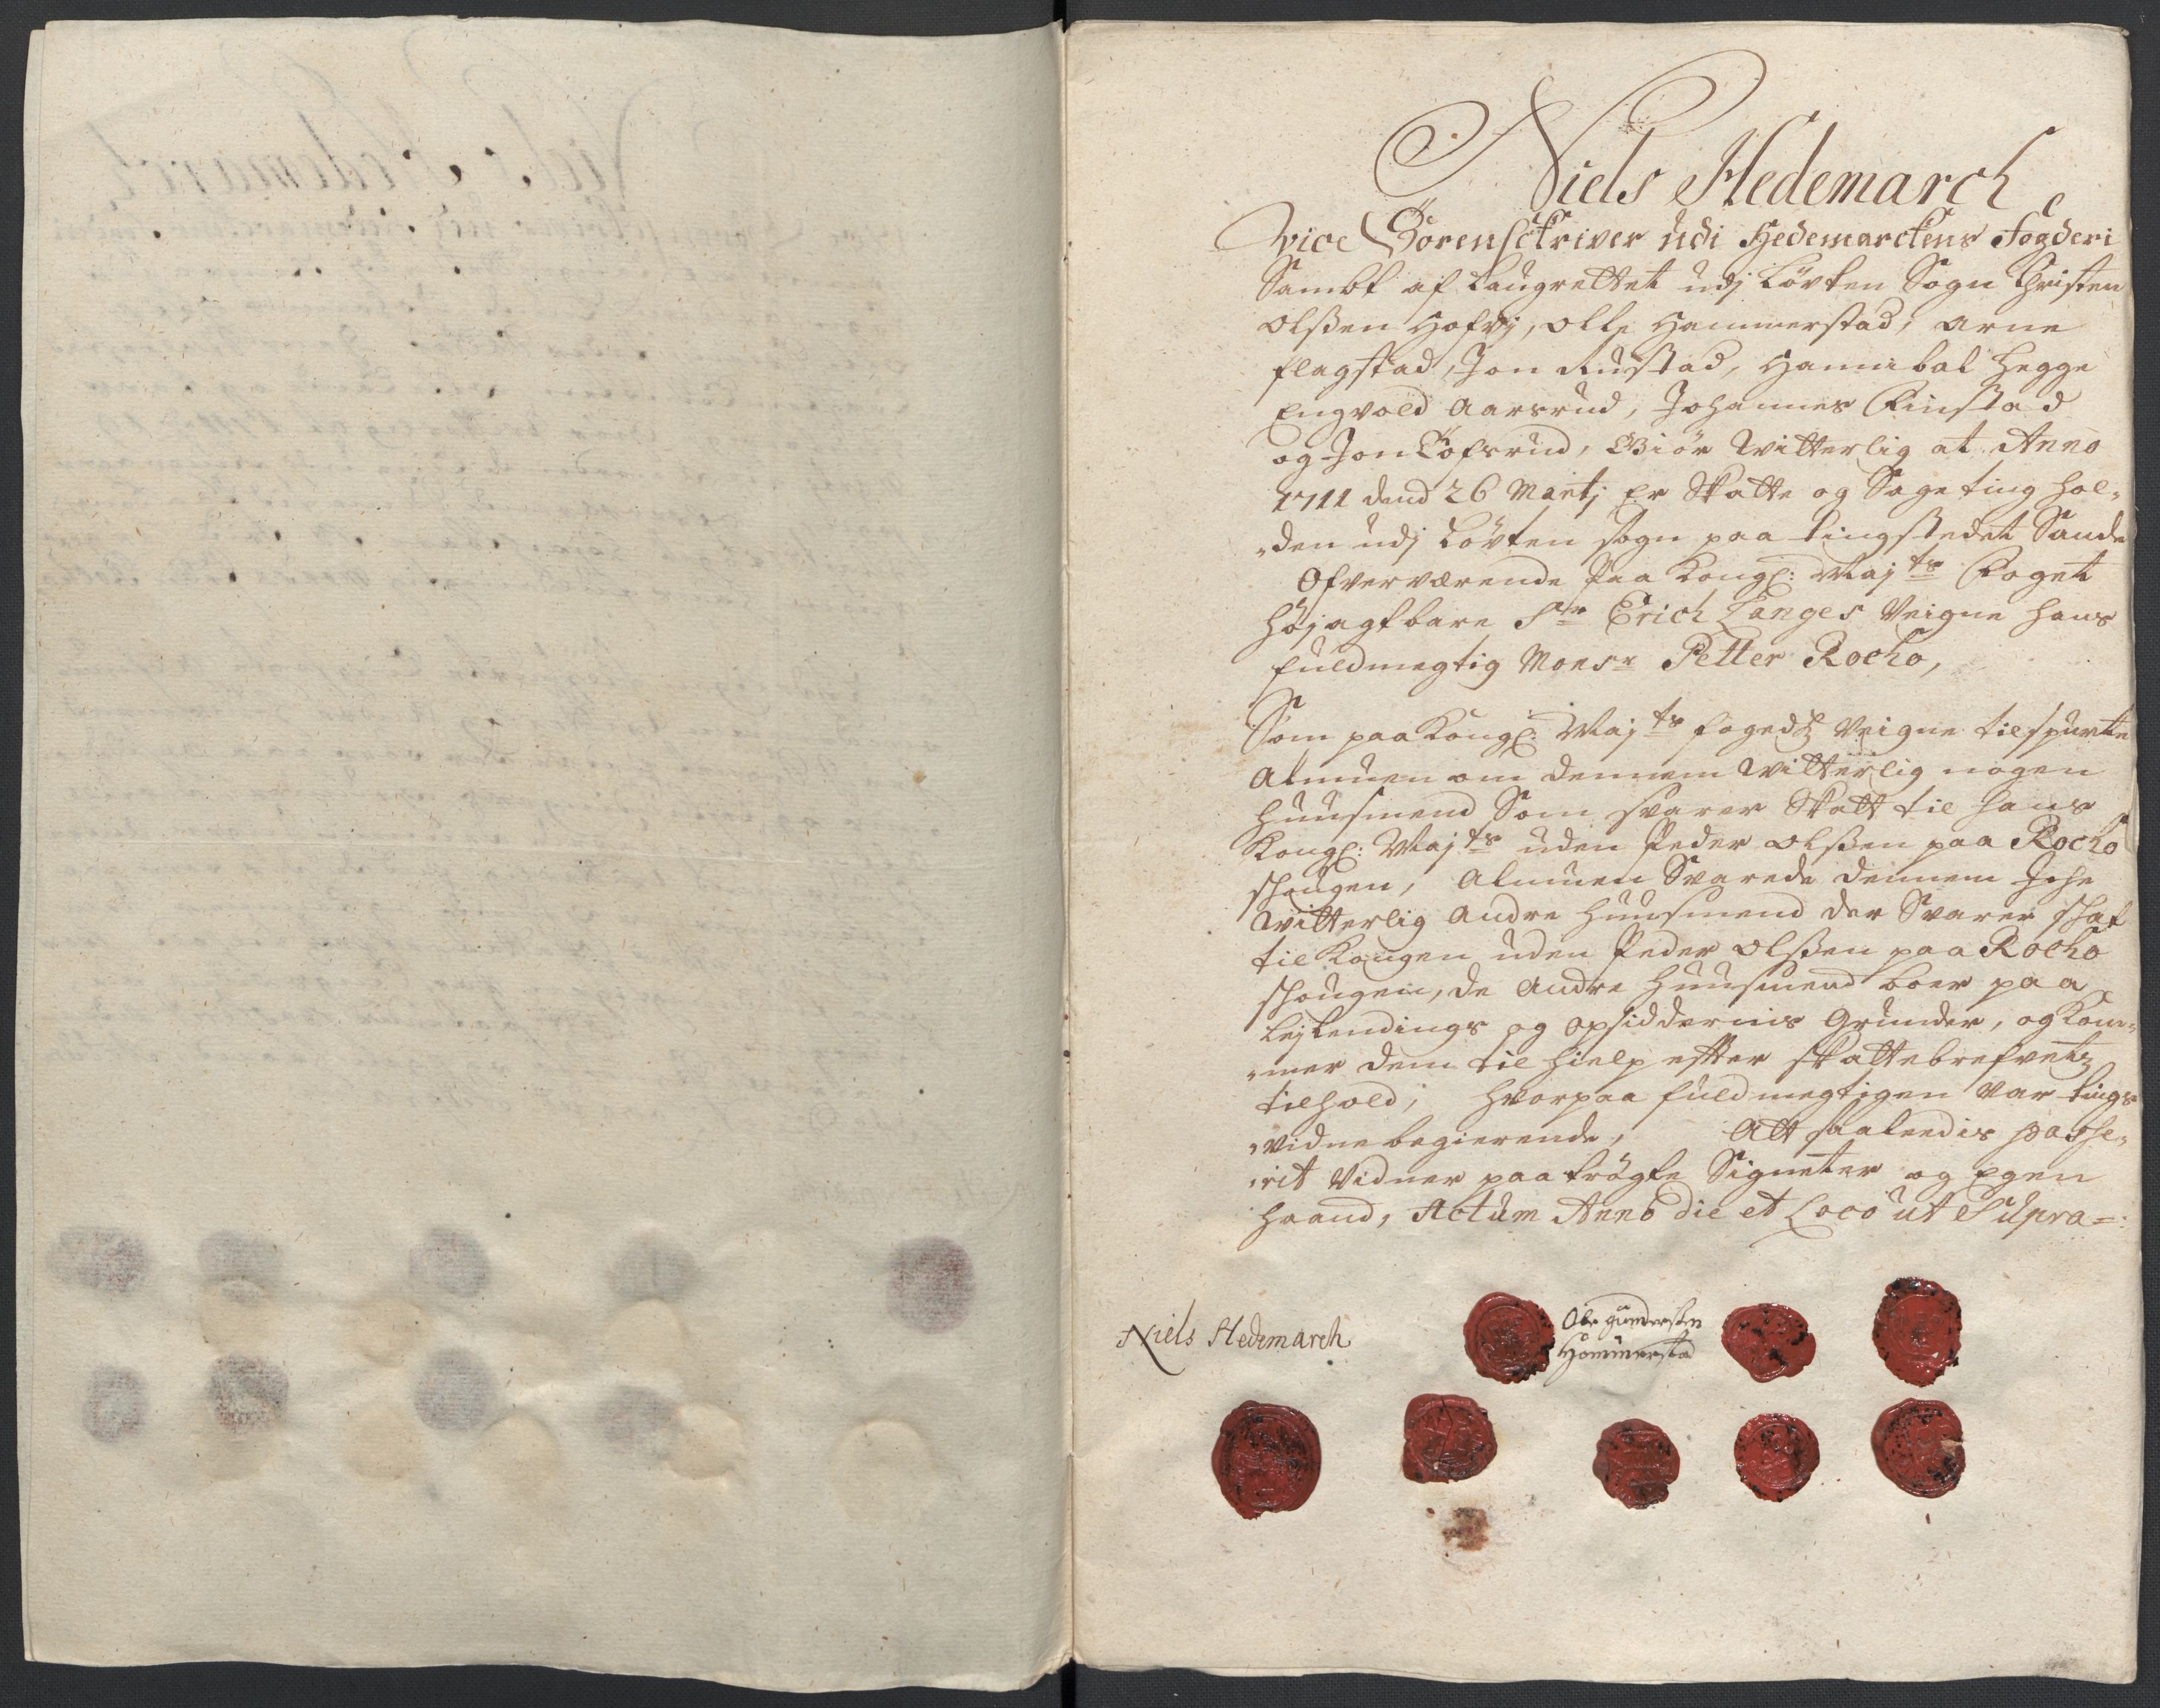 Niels Hedemarch
vice Sorenschriver Udi Hedemarckens Fogderi
Sambt af Laugrettet udj Löyten Sogn Christen
Olßen Hofvj, Olle Hammerstad, Arne
Flagstad, Jon Rustad, Hannibal Hegge
Engvold Aarsrud, Johannes Finstad
og Jon Tofsrud, Giör Witterlig at Anno
1711 dend 26 Martj er Skatte og Sage ting hol„
„den udj Löyten Sogn paa tingstedet Sande
Ofverværende paa Kongl: Majts Foget
Höjagtbare Sr Erich Langes Veigne hans
fuldmegtig Monsr Petter Rocho,
Som paa Kongl: Majts fogedz Veigne tilspurte
Almuen om dennem Witterlig nogen
Huusmend Som svarer Skatt til hans
Kongl: Majts uden Peder Olßen paa Rocho
schougen, Almuen Svarede dennem Iche
Witterlig Andre Huusmend der Svarer schat
til Kongen uden Peder Olßen paa Rocho
schougen, de Andre Huusmend boer paa
Lejlendings og opsiddernis Grunder, og Kom„
„mer dem til hielp effter skattebrefvetz
tilhold, hvorpaa fuldmegtigen var tings
„vidne begierende, Att saaleedis passe„
„rit Vidner paa trögte Signeter og Egen
haand, Actum Anno die et Loco ut Supra=:
Niels Hedemarch
Ole gundersßen
Hommerstad